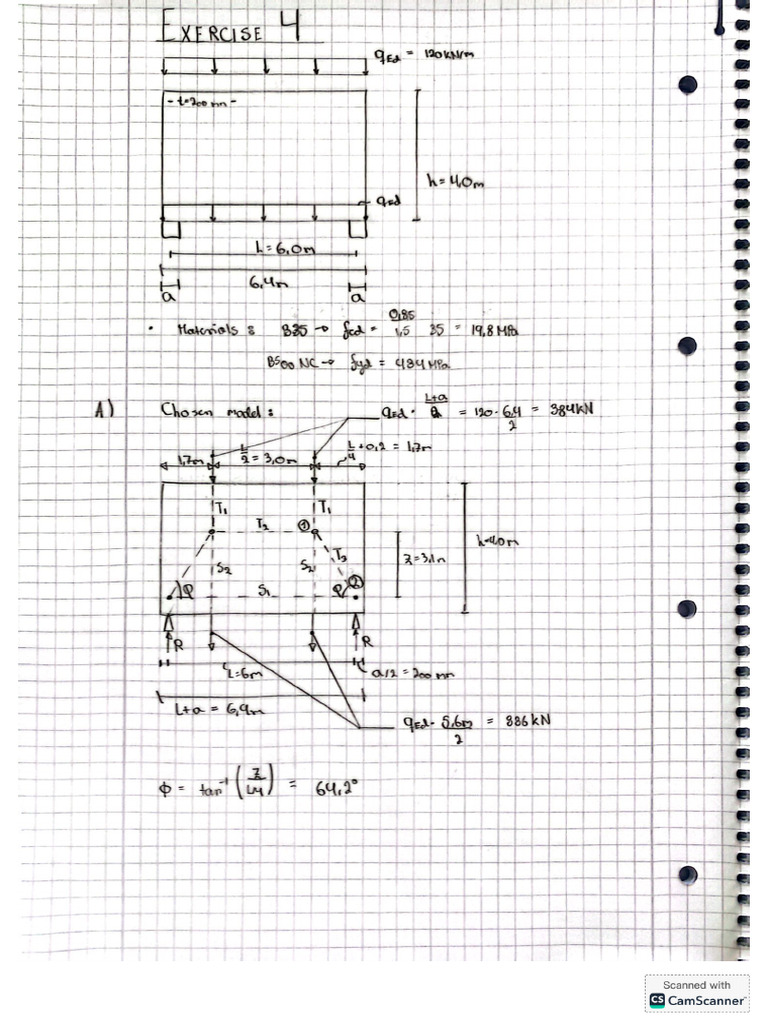 EXERCISE 4
qEd = 120 kN/m
- t=200 mm -
h = 4,0m
qEd
L = 6,0m
6,4m
a a
• Materials : B35 → fcd = 0,85/1,5 35 = 19,8 MPa
B500 NC → fyd = 434 MPa
A) Chosen model : qEd · L+a/2 = 120 · 6,4/2 = 384 kN
1,7m L/2 = 3,0m L/4 + 0,2 = 1,7m
T1 T1
T2 ①
h=4,0m
S2 S2 T3 Z = 3,1m
φ S1 φ ②
R R
L=6m a/2 = 200 mm
L+a = 6,4m
qEd · 5,6m/2 = 336 kN
Φ = tan⁻¹ (Z/L/4) = 64,2°
Scanned with
CS CamScanner